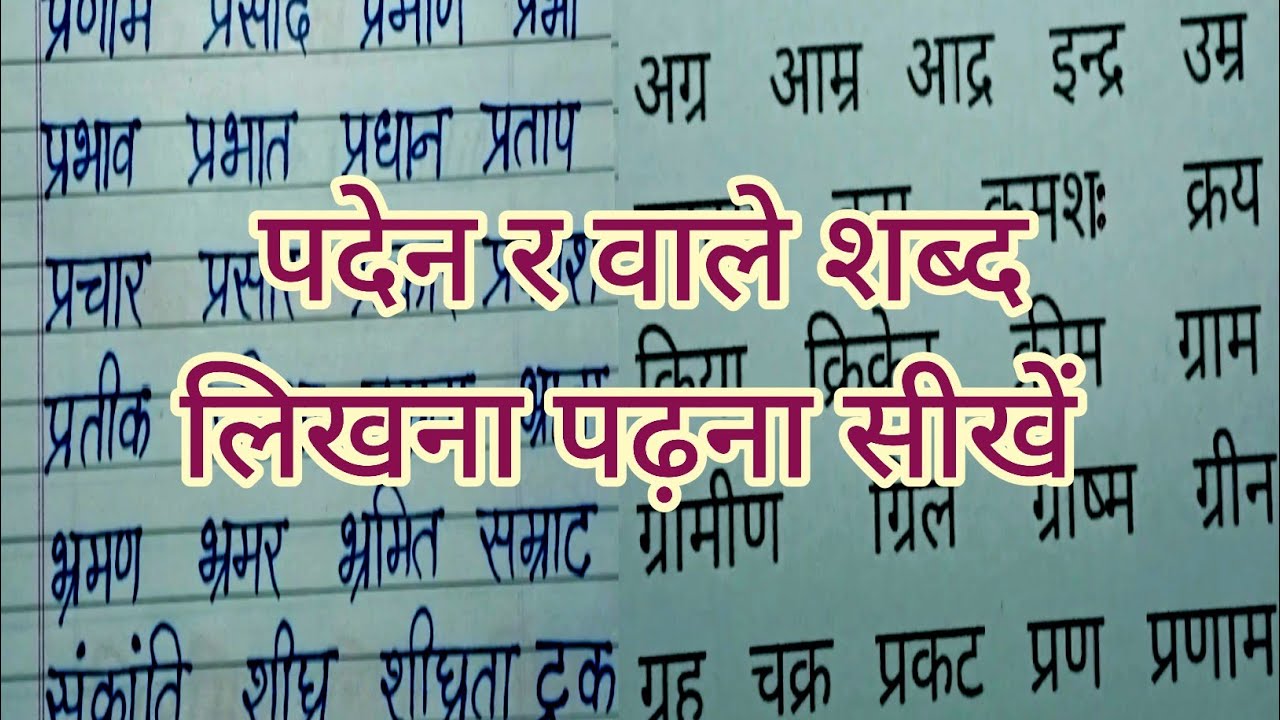 प्रणाम प्रसाद प्रमाण प्रभा
प्रभाव प्रभात प्रधान प्रताप
प्रचार प्रसार
प्रतीक
भ्रमण भ्रमर भ्रमित सम्राट
संक्रांति शीघ्र शीघ्रता ट्रक
अग्र आम्र आद्र इन्द्र उम्र
क्रमशः क्रय
क्रिया क्रिकेट क्रीम ग्राम
ग्रामीण ग्रिल ग्रीष्म ग्रीन
ग्रह चक्र प्रकट प्रण प्रणाम
पदेन र वाले शब्द
लिखना पढ़ना सीखें